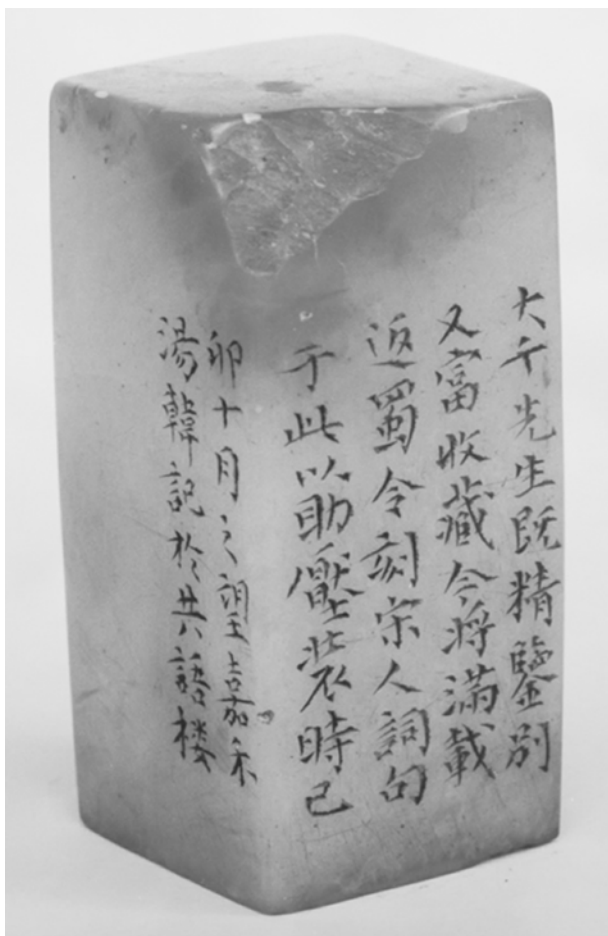 大千先生既精鑒別
又富收藏今將滿載
返蜀令刻宋人詞句
于此以助壓裝時己
卯十月之望嘉禾
湯韓記於共語樓